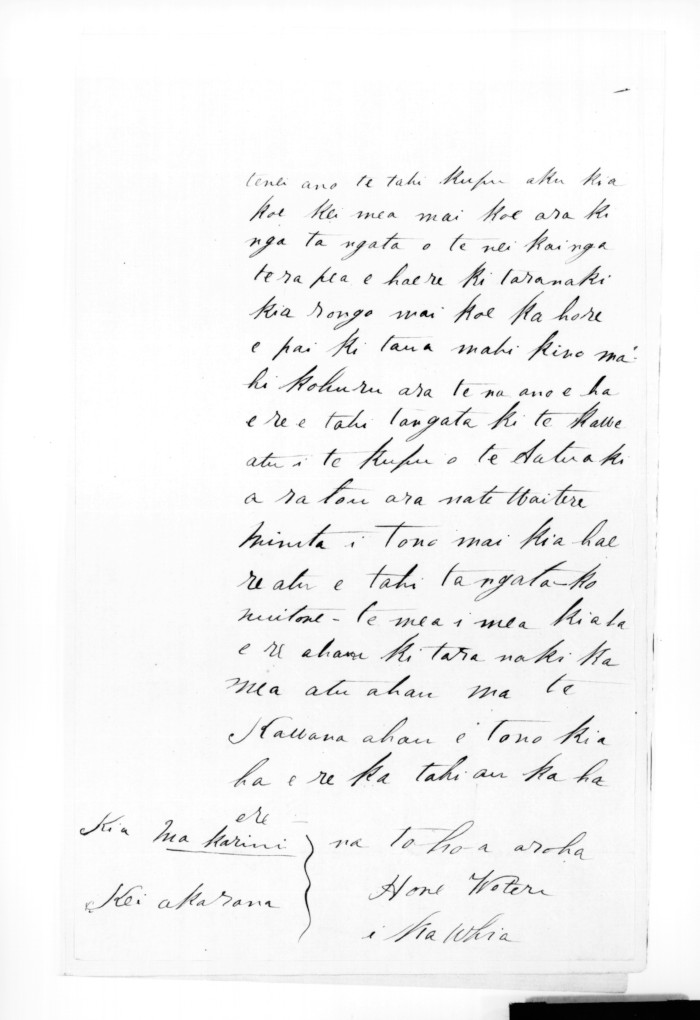 tenei ano te tahi kupu aku kia
koe kei mea mai koe ara ki
nga ta ngata o te nei kainga
tera pea e haere ki taranaki
kia rongo mai koe ka hore
e pai ki taua mahi kino ma-
hi kohuru ara te na ano e ha
ere e tahi tangata ki te kawe
atu i te kupu o te Aatua ki
a ra tou ara na te Waitere
minita i tono mai kia hae
re atu e tahi ta ngata - ko
te mea i mea kia ha
e re ahau ki tara naki ka
mea atu ahau ma te
Kawana ahau e tono kia
ha e re ka tahi au ka ha
ere -
Kia Ma karini
Kei akarana
na to ho-a aroha
Hone Weteru
i Ka Whia